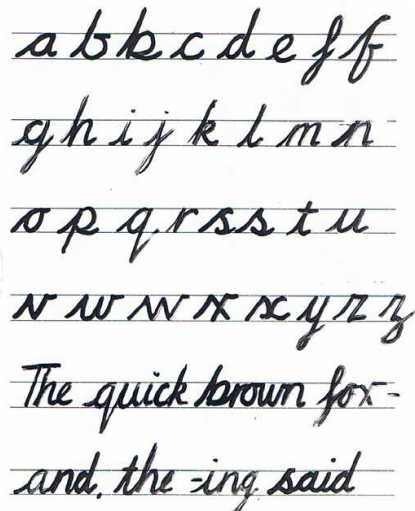 a b b c d e f f
g h i j k l m n
o p q r s s t u
v w w x x y z z
The quick brown fox-
and, the -ing said